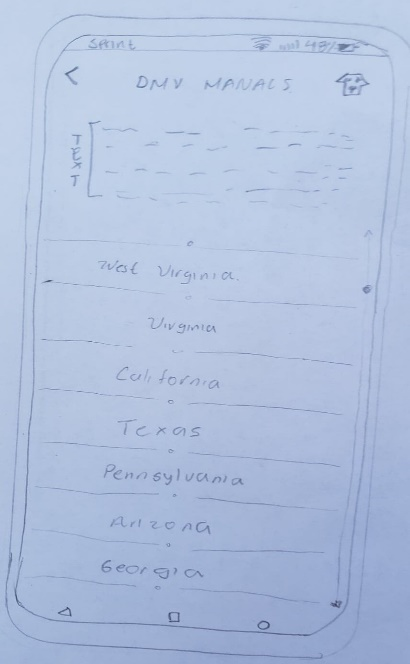 Sprint
DMV MANALS
TEXT
West Virginia
Virginia
California
Texas
Pennsylvania
Arizona
Georgia